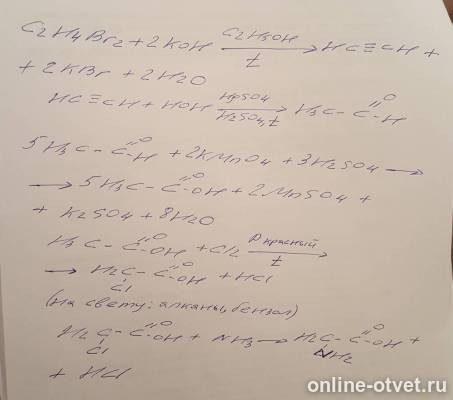 C2H4Br2 + 2KOH C2H5OH/t → HC≡CH +
+ 2KBr + 2H2O
HC≡CH + HOH HgSO4/H2SO4,t → H3C – C=O –H
5H3C – C=O –H + 2KMnO4 + 3H2SO4 →
→ 5H3C – C=O –OH + 2MnSO4 +
+ K2SO4 + 8H2O
H3C – C=O –OH + Cl2 P красный/t →
→ H2C – C=O –OH + HCl
Cl
(на свету: алканы, бензол)
H2C – C=O –OH + NH3 → H2C – C=O –OH +
Cl NH2
+ HCl
online-otvet.ru